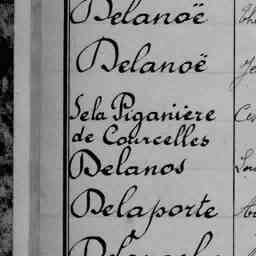 Delanoë
Delanoë
De la Piganiere
de Courcelles
Delanos
Delaporte